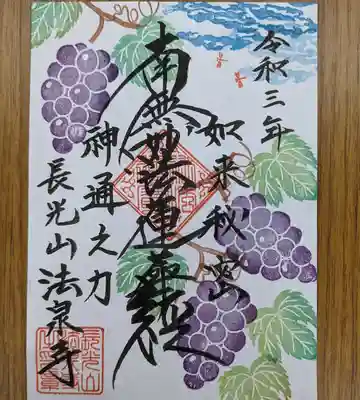 令和三年
如来秘密
南無妙法蓮華経
神通之力
長光山 法泉寺